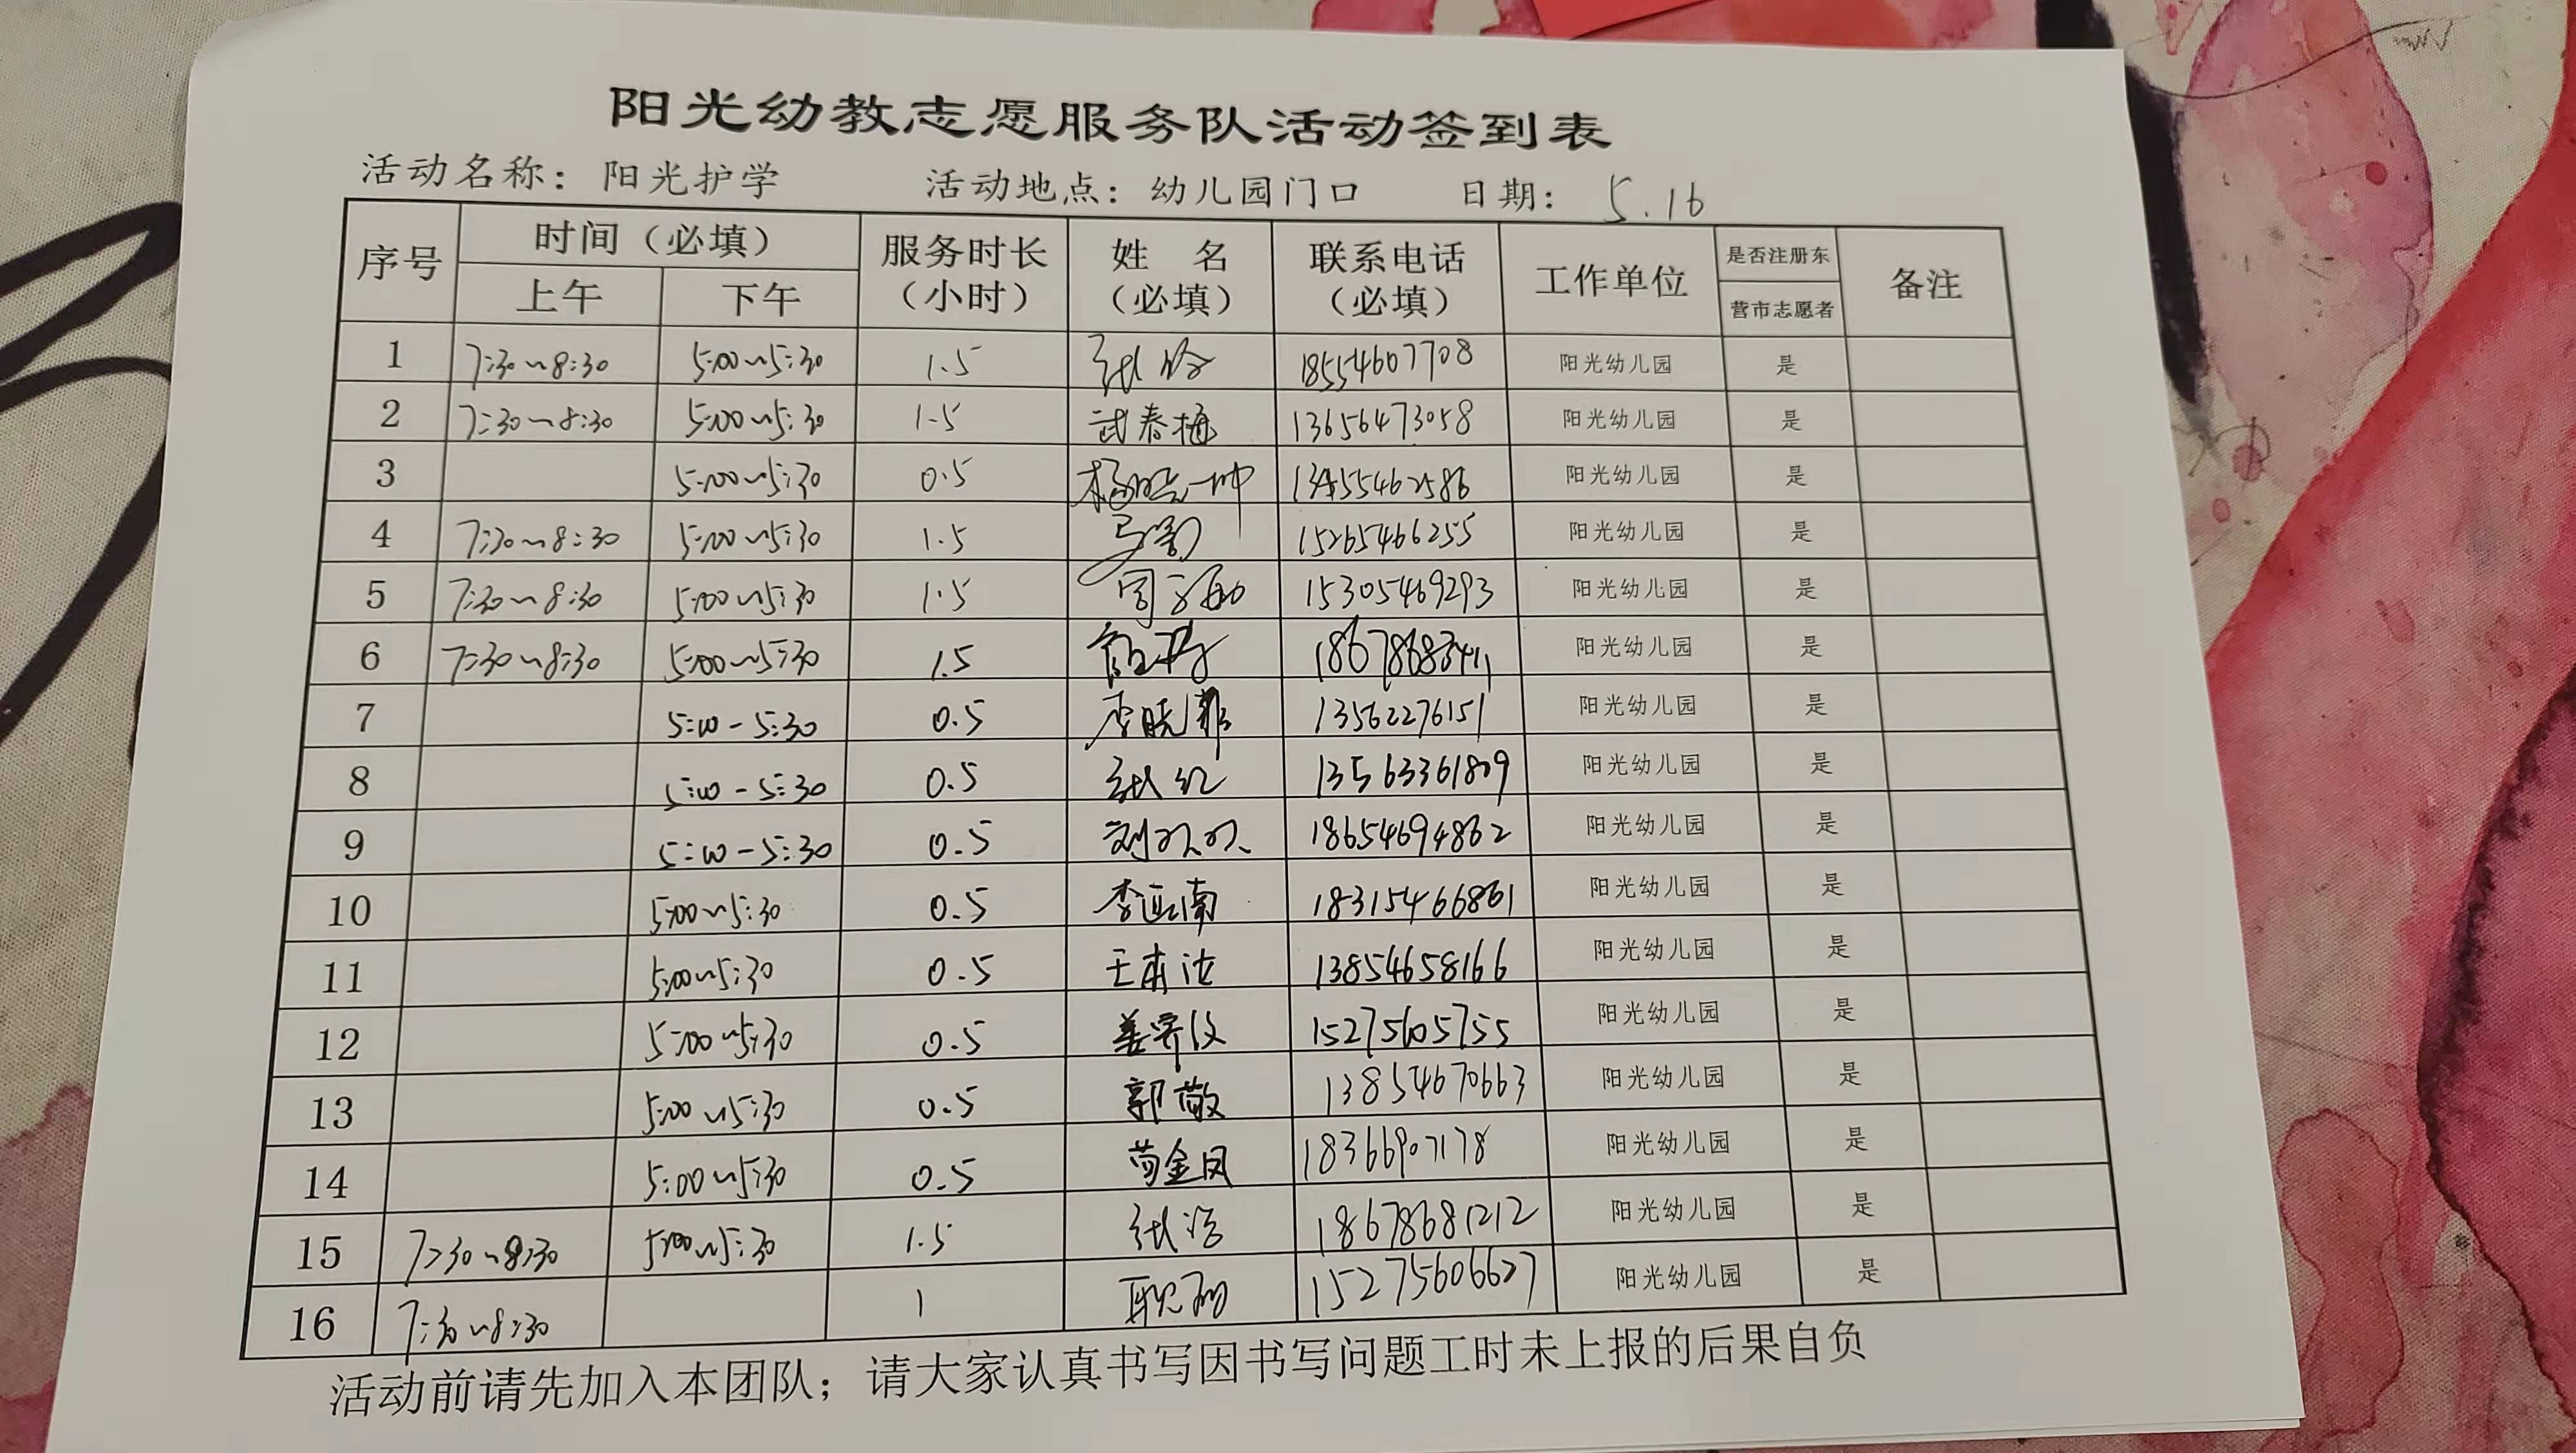 阳光幼教志愿服务队活动签到表
活动名称：阳光护学 活动地点：幼儿园门口 日期： 5.16
序号 时间（必填） 上午 下午 服务时长（小时） 姓 名（必填） 联系电话（必填） 工作单位 是否注册东营市志愿者 备注
1 7:30~8:30 5:00~5:30 1.5 张玲 18554607708 阳光幼儿园 是
2 7:30~8:30 5:00~5:30 1.5 武春梅 13656473058 阳光幼儿园 是
3 5:00~5:30 0.5 13455462586 阳光幼儿园 是
4 7:30~8:30 5:00~5:30 1.5 15265466255 阳光幼儿园 是
5 7:30~8:30 5:00~5:30 1.5 15305469293 阳光幼儿园 是
6 7:30~8:30 5:00~5:30 1.5 阳光幼儿园 是
7 5:00-5:30 0.5 李晓菲 13562276151 阳光幼儿园 是
8 5:00-5:30 0.5 张红 13563361809 阳光幼儿园 是
9 5:00-5:30 0.5 刘双双 18654694862 阳光幼儿园 是
10 5:00~5:30 0.5 18315466861 阳光幼儿园 是
11 5:00~5:30 0.5 13854658166 阳光幼儿园 是
12 5:00~5:30 0.5 15275605755 阳光幼儿园 是
13 5:00~5:30 0.5 郭敬 13854670663 阳光幼儿园 是
14 5:00~5:30 0.5 苟金凤 18366907178 阳光幼儿园 是
15 7:30~8:30 5:00~5:30 1.5 18678681212 阳光幼儿园 是
16 7:30~8:30 1 15275606627 阳光幼儿园 是
活动前请先加入本团队；请大家认真书写因书写问题工时未上报的后果自负